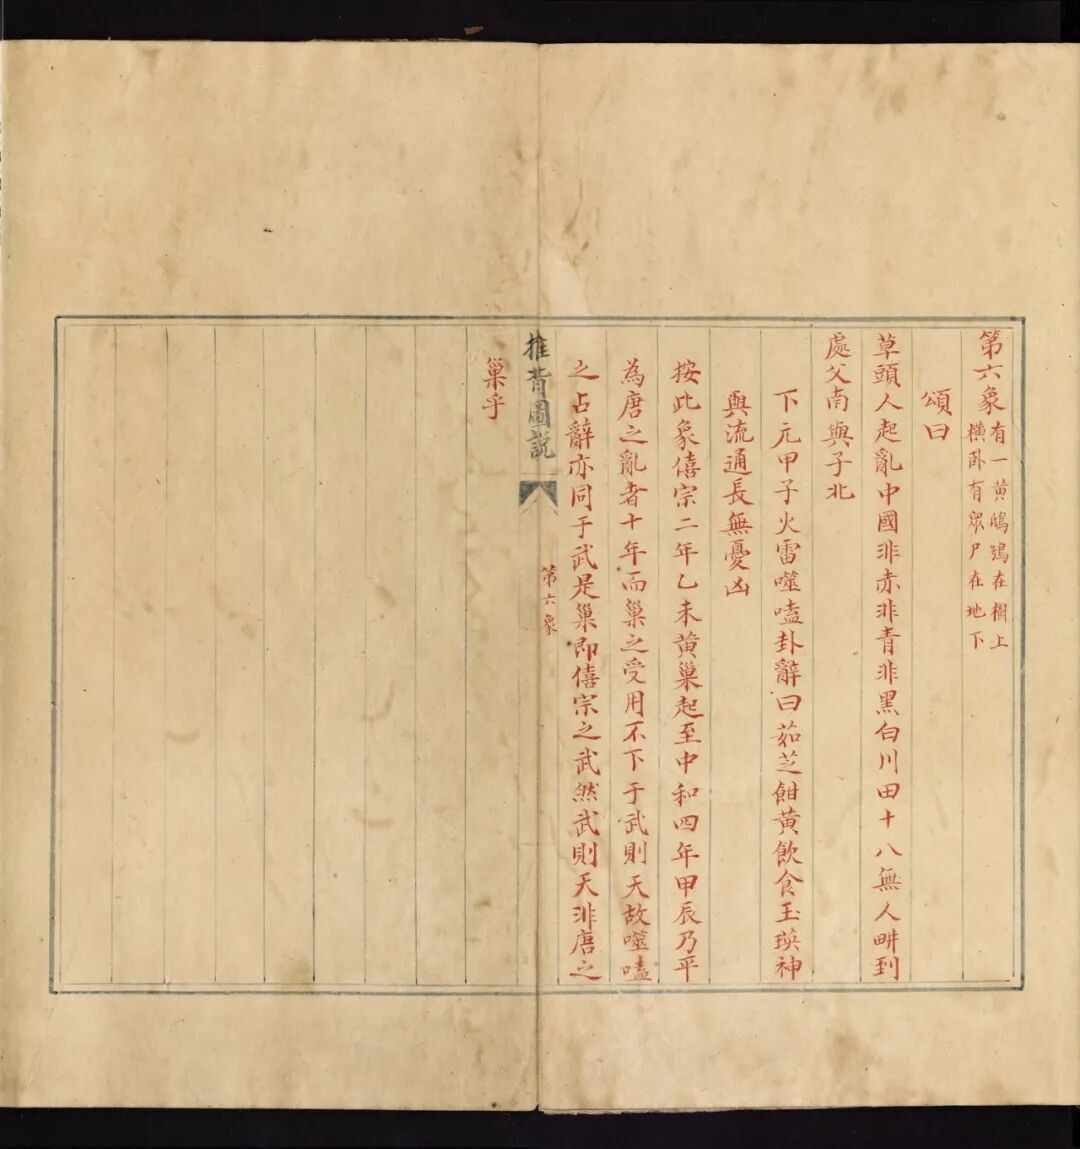 第六象 有一黄鴟鴞在樹上
橫卧有眾尸在地下
頌曰
草頭人起亂中國非赤非青非黑白川田十八無人畊到
處父南與子北
下元甲子火雷噬嗑卦辭曰茹芝餌黄飲食玉瑛神
與流通長無憂凶
按此象僖宗二年乙未黄巢起至中和四年甲辰乃平
為唐之亂者十年而巢之受用不下于武則天故噬嗑
之占辭亦同于武是巢即僖宗之武然武則天非唐之
推背圖説
第六象
巢乎